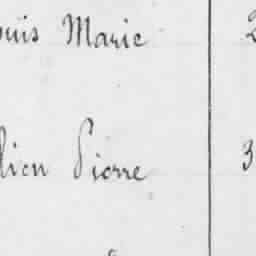 ouis Marie 2
lien Pierre 3